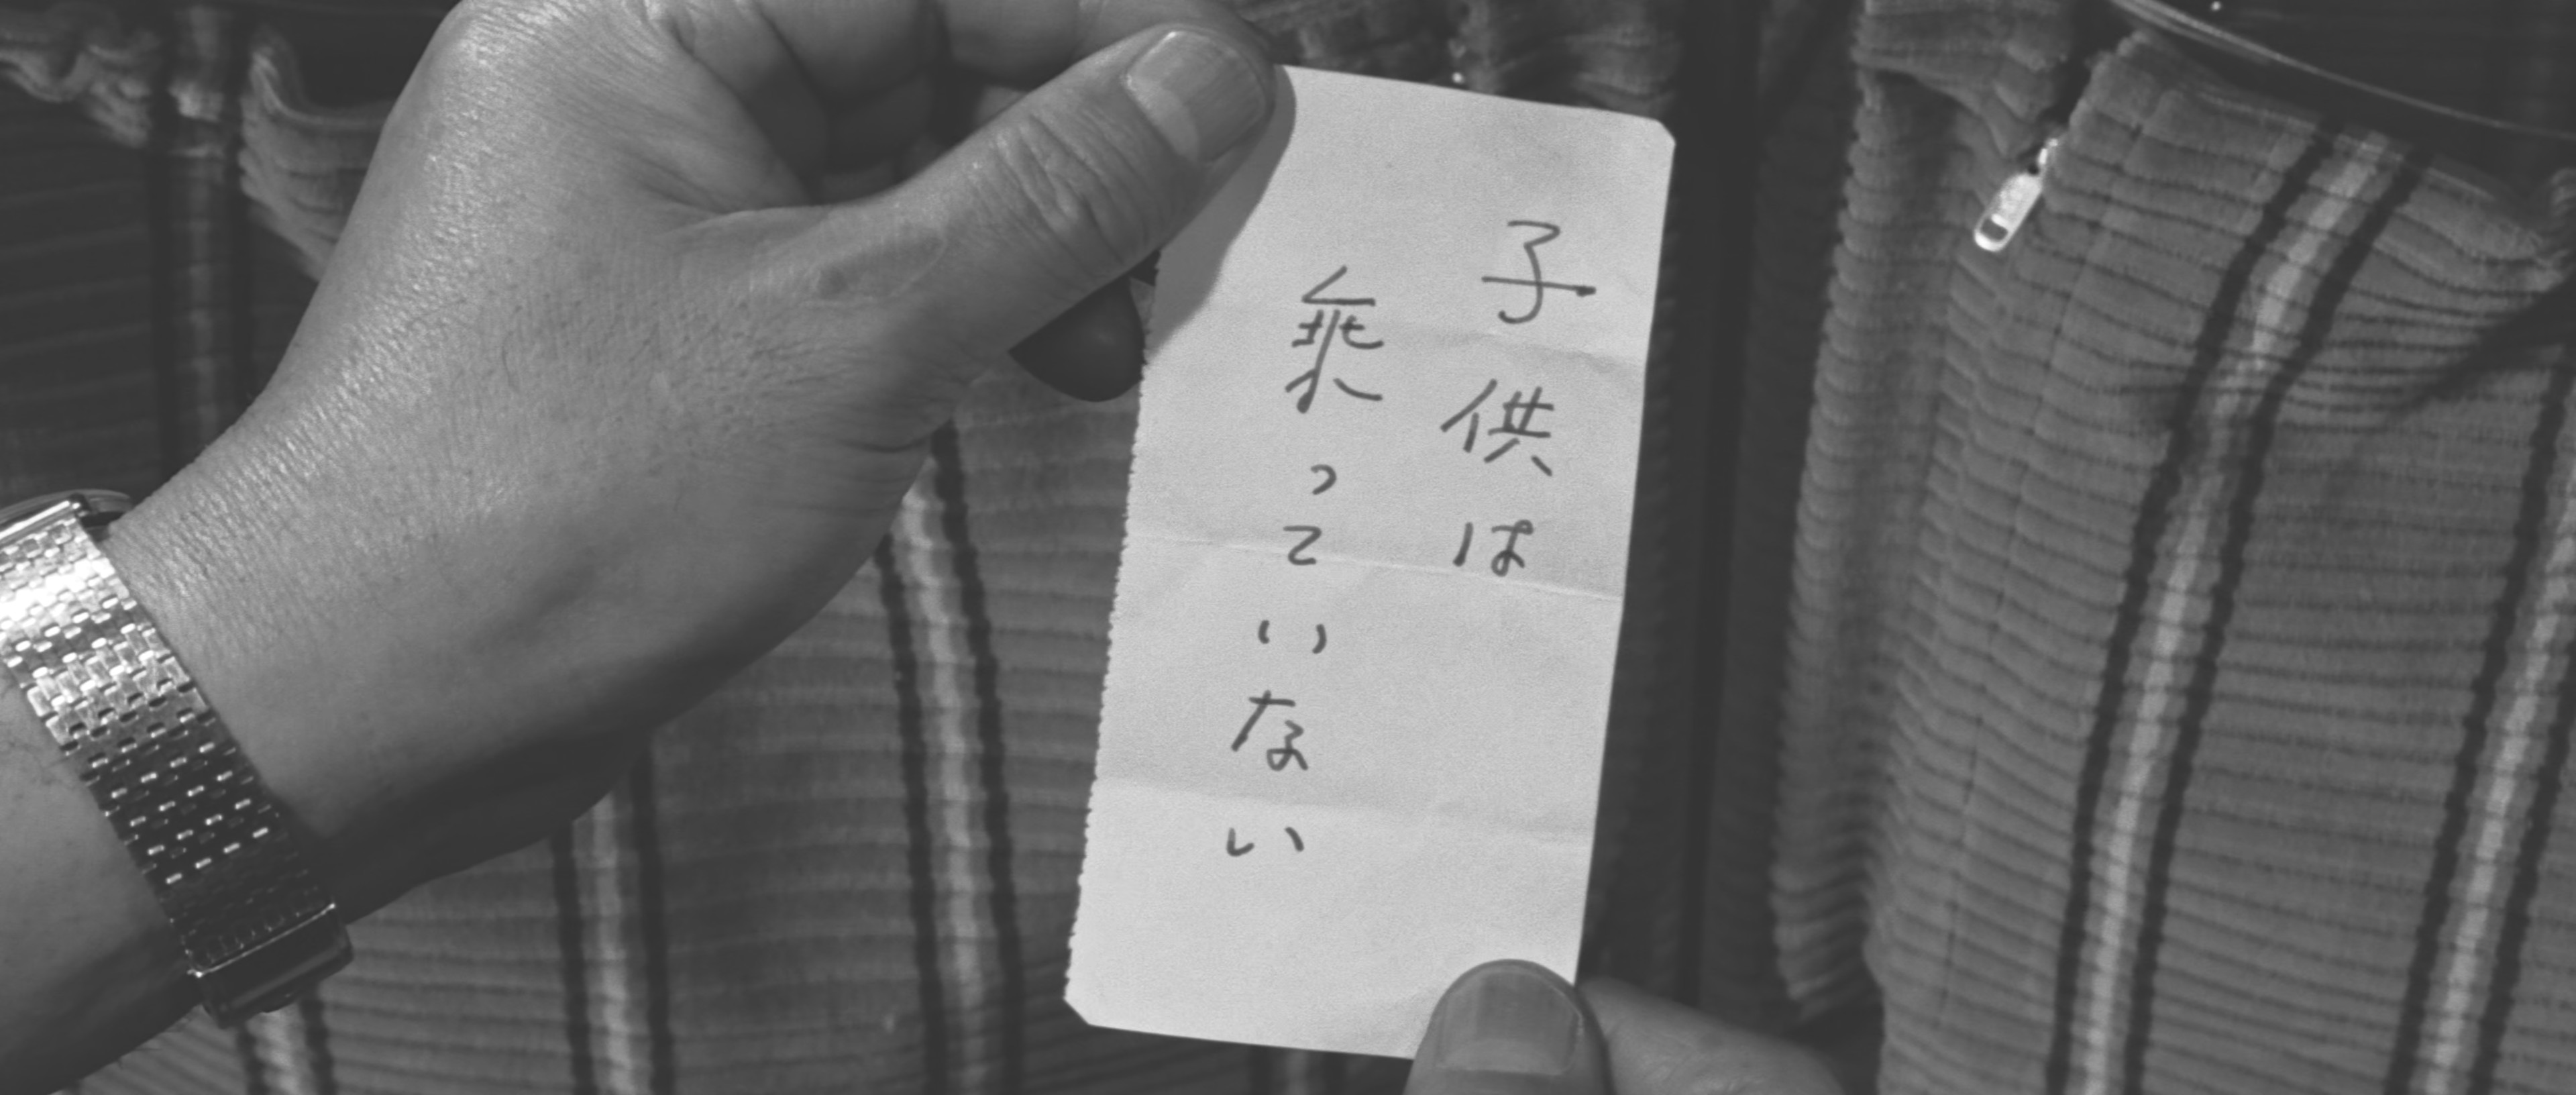 子供は
乗っていない